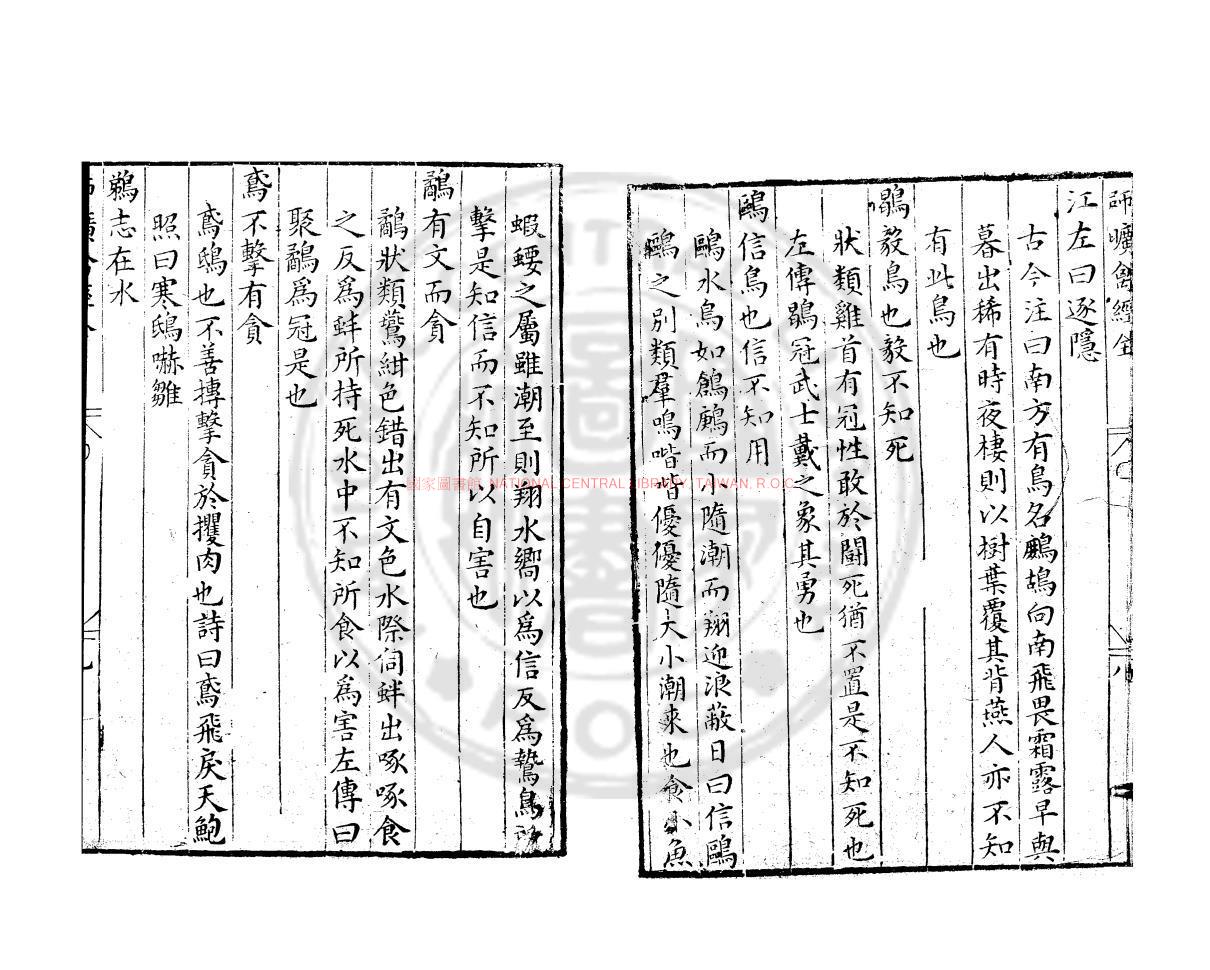 師曠禽經全
江左曰逐隱
古今注曰南方有鳥名鷓鴣向南飛畏霜露早與
暮出稀有時夜棲則以樹葉覆其背燕人亦不知
有此鳥也
鶡毅鳥也毅不知死
狀類雞首有冠性敢於鬪死猶不置是不知死也
左傳鶡冠武士戴之象其勇也
鷗信鳥也信不知用
鷗水鳥如鶬鶊而小隨潮而翔迎浪蔽日曰信鷗
鷗之別類羣鳴喈喈優優隨大小潮來也食小魚
八
蝦蛶之屬雖潮至則翔水嚮以爲信反爲鷙鳥
擊是知信而不知所以自害也
鷸有文而貪
鷸狀類鷰紺色錯出有文色水際伺蚌出啄啄食
之反爲蚌所持死水中不知所食以爲害左傳曰
聚鷸爲冠是也
鳶不擊有貪
鳶鴟也不善搏擊貪於攫肉也詩曰鳶飛戾天鮑
照曰寒鴟嚇雛
鵜志在水
國家圖書館, NATIONAL CENTRAL LIBRARY, TAIWAN, R.O.C.